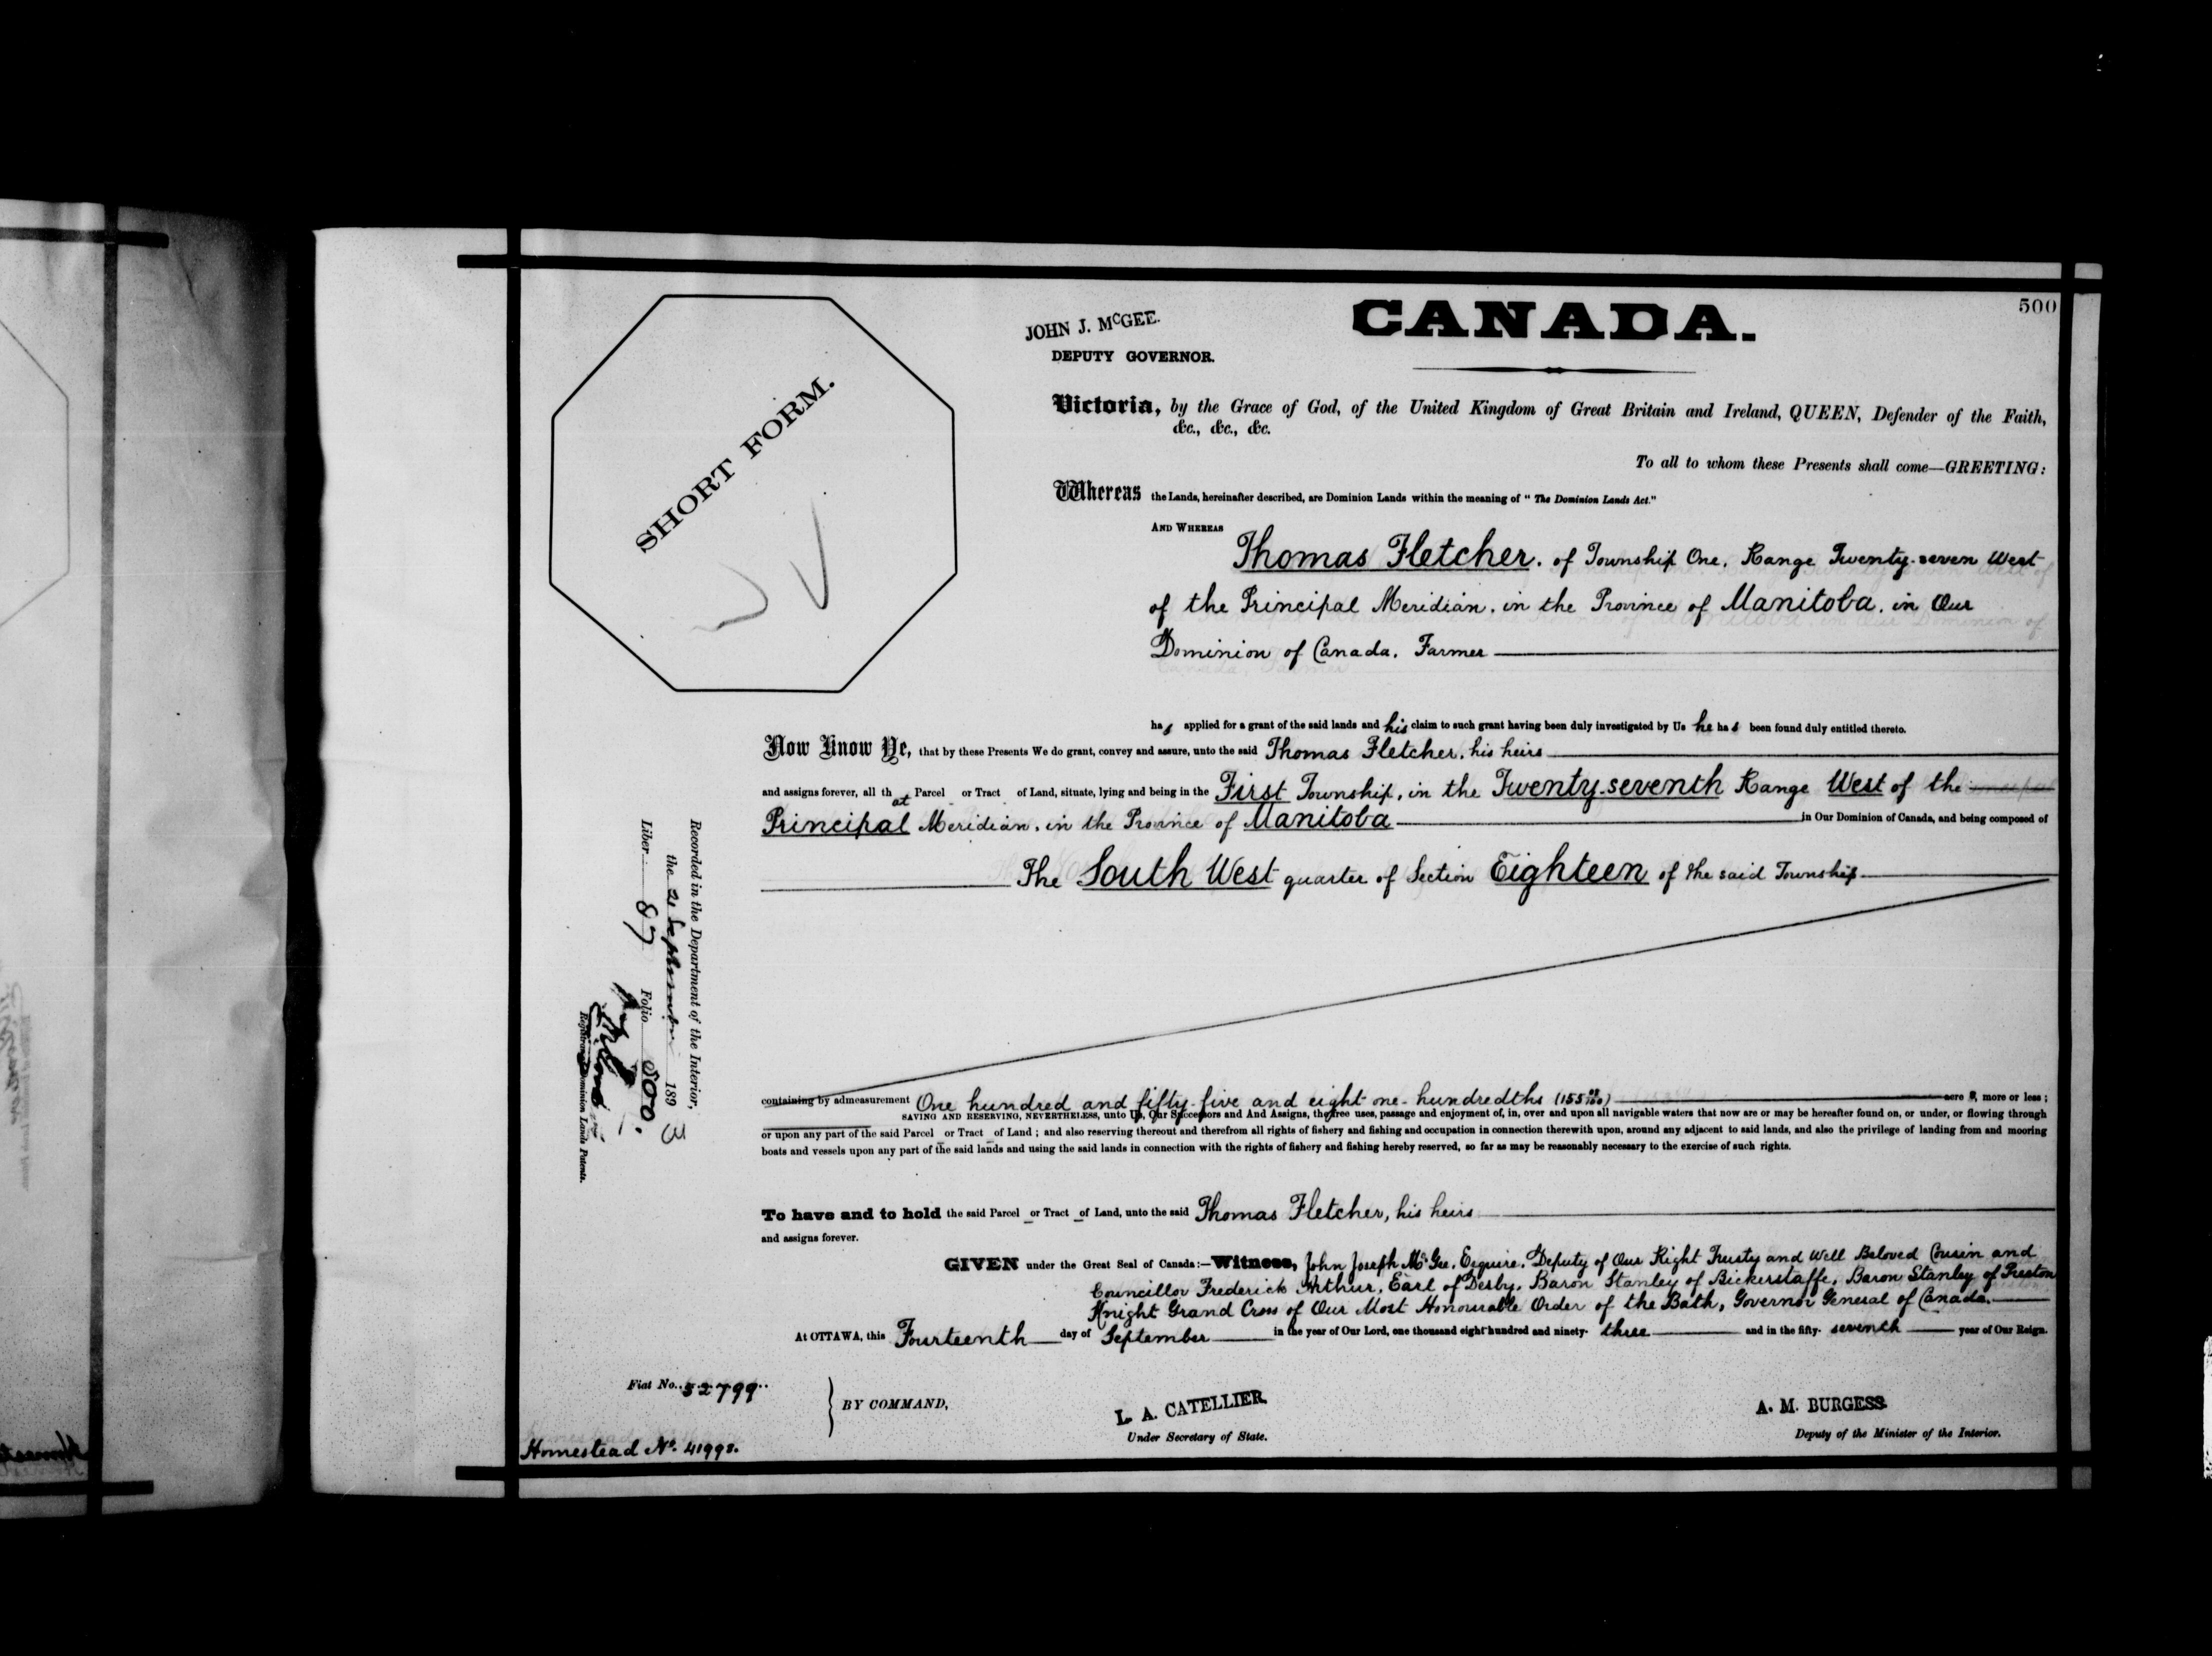 500
JOHN J. McGEE.
DEPUTY GOVERNOR.
CANADA.
SHORT FORM.
Victoria, by the Grace of God, of the United Kingdom of Great Britain and Ireland, QUEEN, Defender of the Faith,
&c., &c., &c.
To all to whom these Presents shall come—GREETING:
Whereas the Lands, hereinafter described, are Dominion Lands within the meaning of "The Dominion Lands Act."
AND WHEREAS
Thomas Fletcher, of Township One, Range Twenty-seven West
of the Principal Meridian, in the Province of Manitoba, in Our
Dominion of Canada, Farmer
has applied for a grant of the said lands and his claim to such grant having been duly investigated by Us he has been found duly entitled thereto.
Now Know Ye, that by these Presents We do grant, convey and assure, unto the said Thomas Fletcher, his heirs
and assigns forever, all that Parcel or Tract of Land, situate, lying and being in the First Township, in the Twenty-seventh Range West of the
Principal Meridian, in the Province of Manitoba in Our Dominion of Canada, and being composed of
The South West quarter of Section Eighteen of the said Township
containing by admeasurement One hundred and fifty-five and eight one-hundredths (155 08/100) acres, more or less;
SAVING AND RESERVING, NEVERTHELESS, unto Us, Our Successors and And Assigns, the free uses, passage and enjoyment of, in, over and upon all navigable waters that now are or may be hereafter found on, or under, or flowing through
or upon any part of the said Parcel or Tract of Land; and also reserving thereout and therefrom all rights of fishery and fishing and occupation in connection therewith upon, around any adjacent to said lands, and also the privilege of landing from and mooring
boats and vessels upon any part of the said lands and using the said lands in connection with the rights of fishery and fishing hereby reserved, so far as may be reasonably necessary to the exercise of such rights.
To have and to hold the said Parcel or Tract of Land, unto the said Thomas Fletcher, his heirs
and assigns forever.
GIVEN under the Great Seal of Canada:—Witness, John Joseph McGee, Esquire, Deputy of Our Right Trusty and Well Beloved Cousin and
Councillor Frederick Arthur, Earl of Derby, Baron Stanley of Bickerstaffe, Baron Stanley of Preston
Knight Grand Cross of Our Most Honourable Order of the Bath, Governor General of Canada.
At OTTAWA, this Fourteenth day of September in the year of Our Lord, one thousand eight hundred and ninety-three and in the fifty-seventh year of Our Reign.
Fiat No. 52799
BY COMMAND,
L. A. CATELLIER,
Under Secretary of State.
A. M. BURGESS
Deputy of the Minister of the Interior.
Homestead No. 41998.
Recorded in the Department of the Interior,
the 21 September 1893
Liber 87 Folio 500.
Registrar of Dominion Lands Patents.